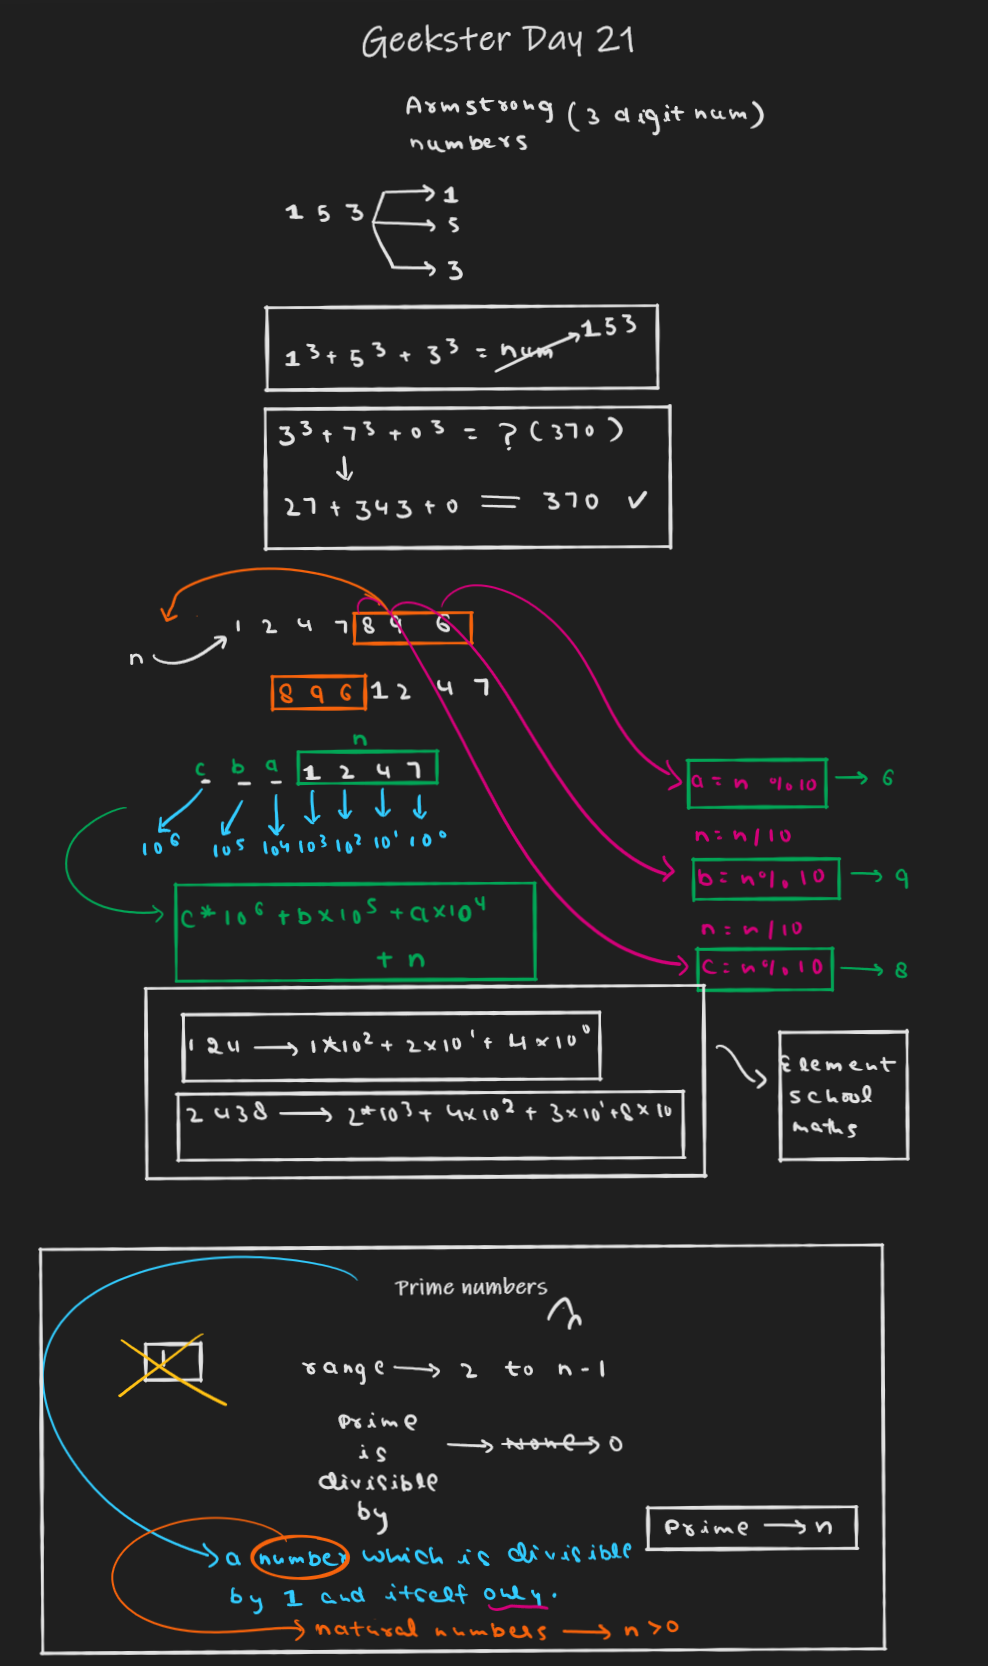 Geekster Day 21
Armstrong (3 digit num)
numbers
1 5 3
1
5
3
1³ + 5³ + 3³ = num 153
3³ + 7³ + 0³ = ? (370)
27 + 343 + 0 = 370 ✓
n
1 2 4 7 8 9 6
8 9 6 1 2 4 7
n
c b a 1 2 4 7
10⁶ 10⁵ 10⁴ 10³ 10² 10¹ 10⁰
c*10⁶ + b×10⁵ + a×10⁴
+ n
a = n % 10 → 6
n = n/10
b = n % 10 → 9
n = n/10
c = n % 10 → 8
124 → 1*10² + 2×10¹ + 4×10⁰
2438 → 2*10³ + 4×10² + 3×10¹ + 8×10
Element
school
maths
Prime numbers
n
1
range → 2 to n-1
Prime
is
divisible
by
→ None → 0
Prime → n
a number which is divisible
by 1 and itself only.
natural numbers → n > 0